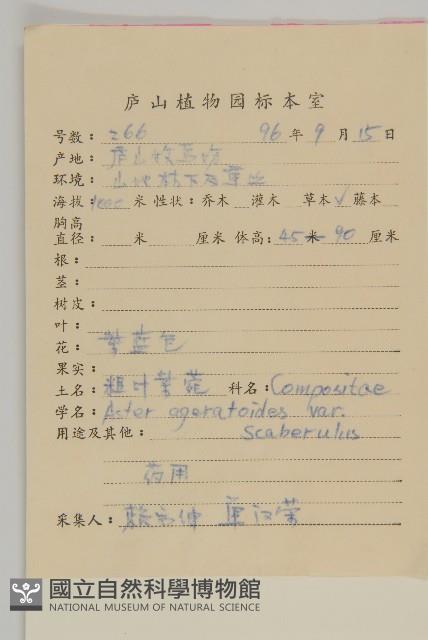 庐山植物园标本室
号数： 266 96 年 9 月 15 日
产地： 庐山牧马场
环境： 山地林下及草丛
海拔： 1000 米 性状： 乔木 灌木 草本√ 藤本
胸高
直径： 米 厘米 体高： 45 米 90 厘米
根：
茎：
树皮：
叶：
花： 紫蓝色
果实：
土名： 粗叶紫菀 科名： Compositae
学名： Aster ageratoides var.
用途及其他： scaberulus
药用
采集人：
國立自然科學博物館
NATIONAL MUSEUM OF NATURAL SCIENCE